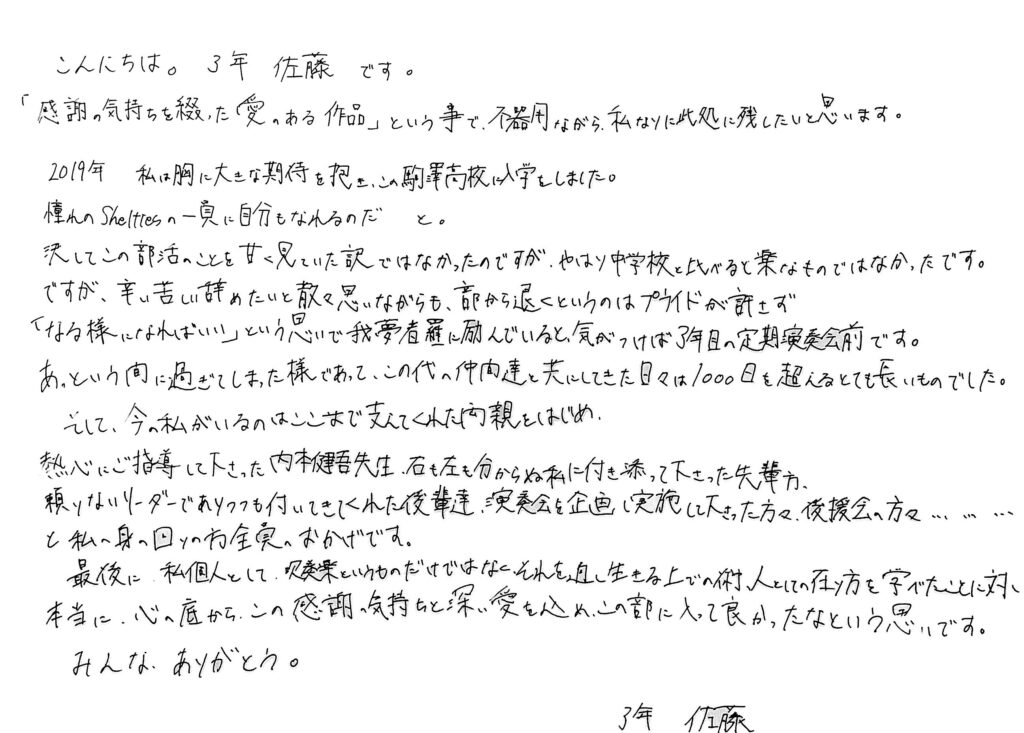 こんにちは。 3年 佐藤 です。
「感謝の気持ちを綴った愛のある作品」という事で、不器用ながら、私なりに此処に残したいと思います。
2019年 私は胸に大きな期待を抱き、この駒澤高校に入学をしました。
憧れのShelttesの一員に自分もなれるのだ と。
決してこの部活のことを甘く見ていた訳ではなかったのですが、やはり中学校と比べると楽なものではなかったです。
ですが、辛い苦しい辞めたいと散々思いながらも、部から退くというのはプライドが許さず
「なる様になればいい」という思いで我夢者羅に励んでいると、気がつけば3年目の定期演奏会前です。
あっという間に過ぎてしまった様であって、この代の仲間達と共にしてきた日々は1000日を超えるとても長いものでした。
そして、今の私がいるのはここまで支えてくれた両親をはじめ、
熱心にご指導して下さった内本健吾先生、右も左も分からぬ私に付き添って下さった先輩方、
頼りないリーダーでありつつも付いてきてくれた後輩達、演奏会を企画し実施して下さった方々、後援会の方々………
と私の身の回りの方全員のおかげです。
最後に、私個人として、吹奏楽というものだけではなくそれを通し生きる上での術、人としての在り方を学べたことに対し
本当に、心の底から、この感謝の気持ちと深い愛を込め、この部に入って良かったなという思いです。
みんな、ありがとう。
3年 佐藤